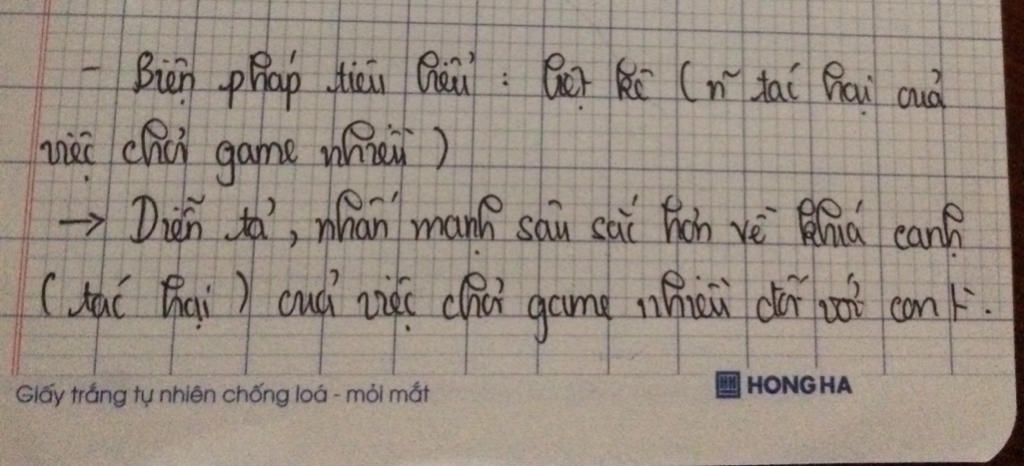 - Biện pháp tiêu biểu : liệt kê (n~ tác hại của
việc chơi game nhiều)
→ Diễn tả, nhấn mạnh sâu sắc hơn về khía cạnh
(tác hại) của việc chơi game nhiều đối với con
Giấy trắng tự nhiên chống loá - mỏi mắt
HH HONG HA